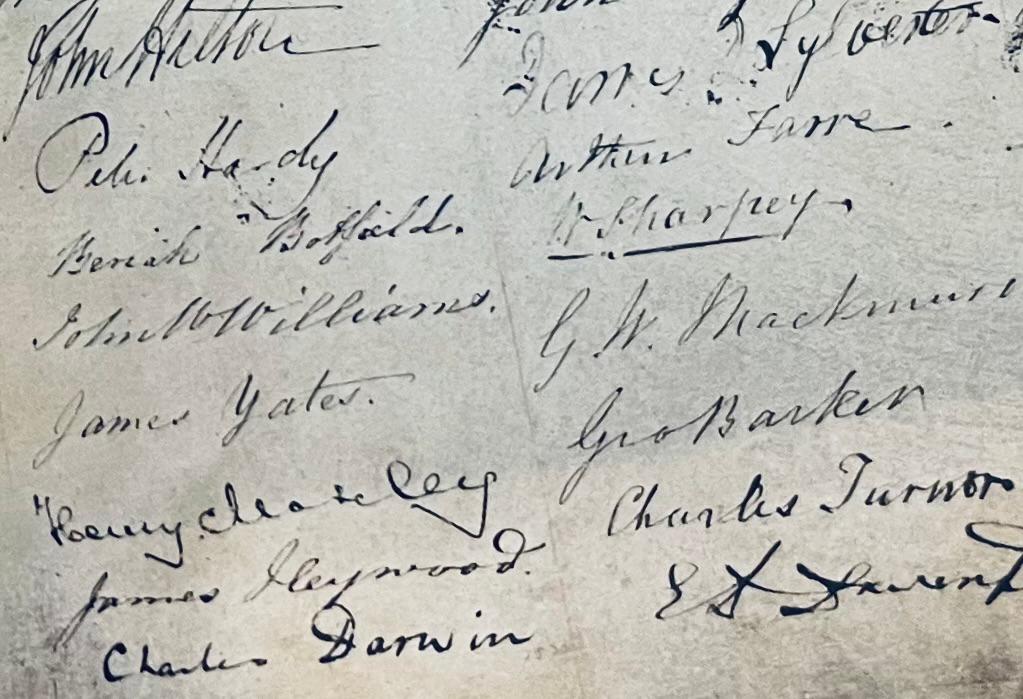 John Hilton
Peter Hardy
Beriah Botfield.
John W Williams.
James Yates.
Henry Moseley
James Heywood.
Charles Darwin
John
James J Sylvester
Arthur Farre.
W Sharpey.
G. W. Mackmurdo
Geo Barker
Charles Turnor
E D Davenp